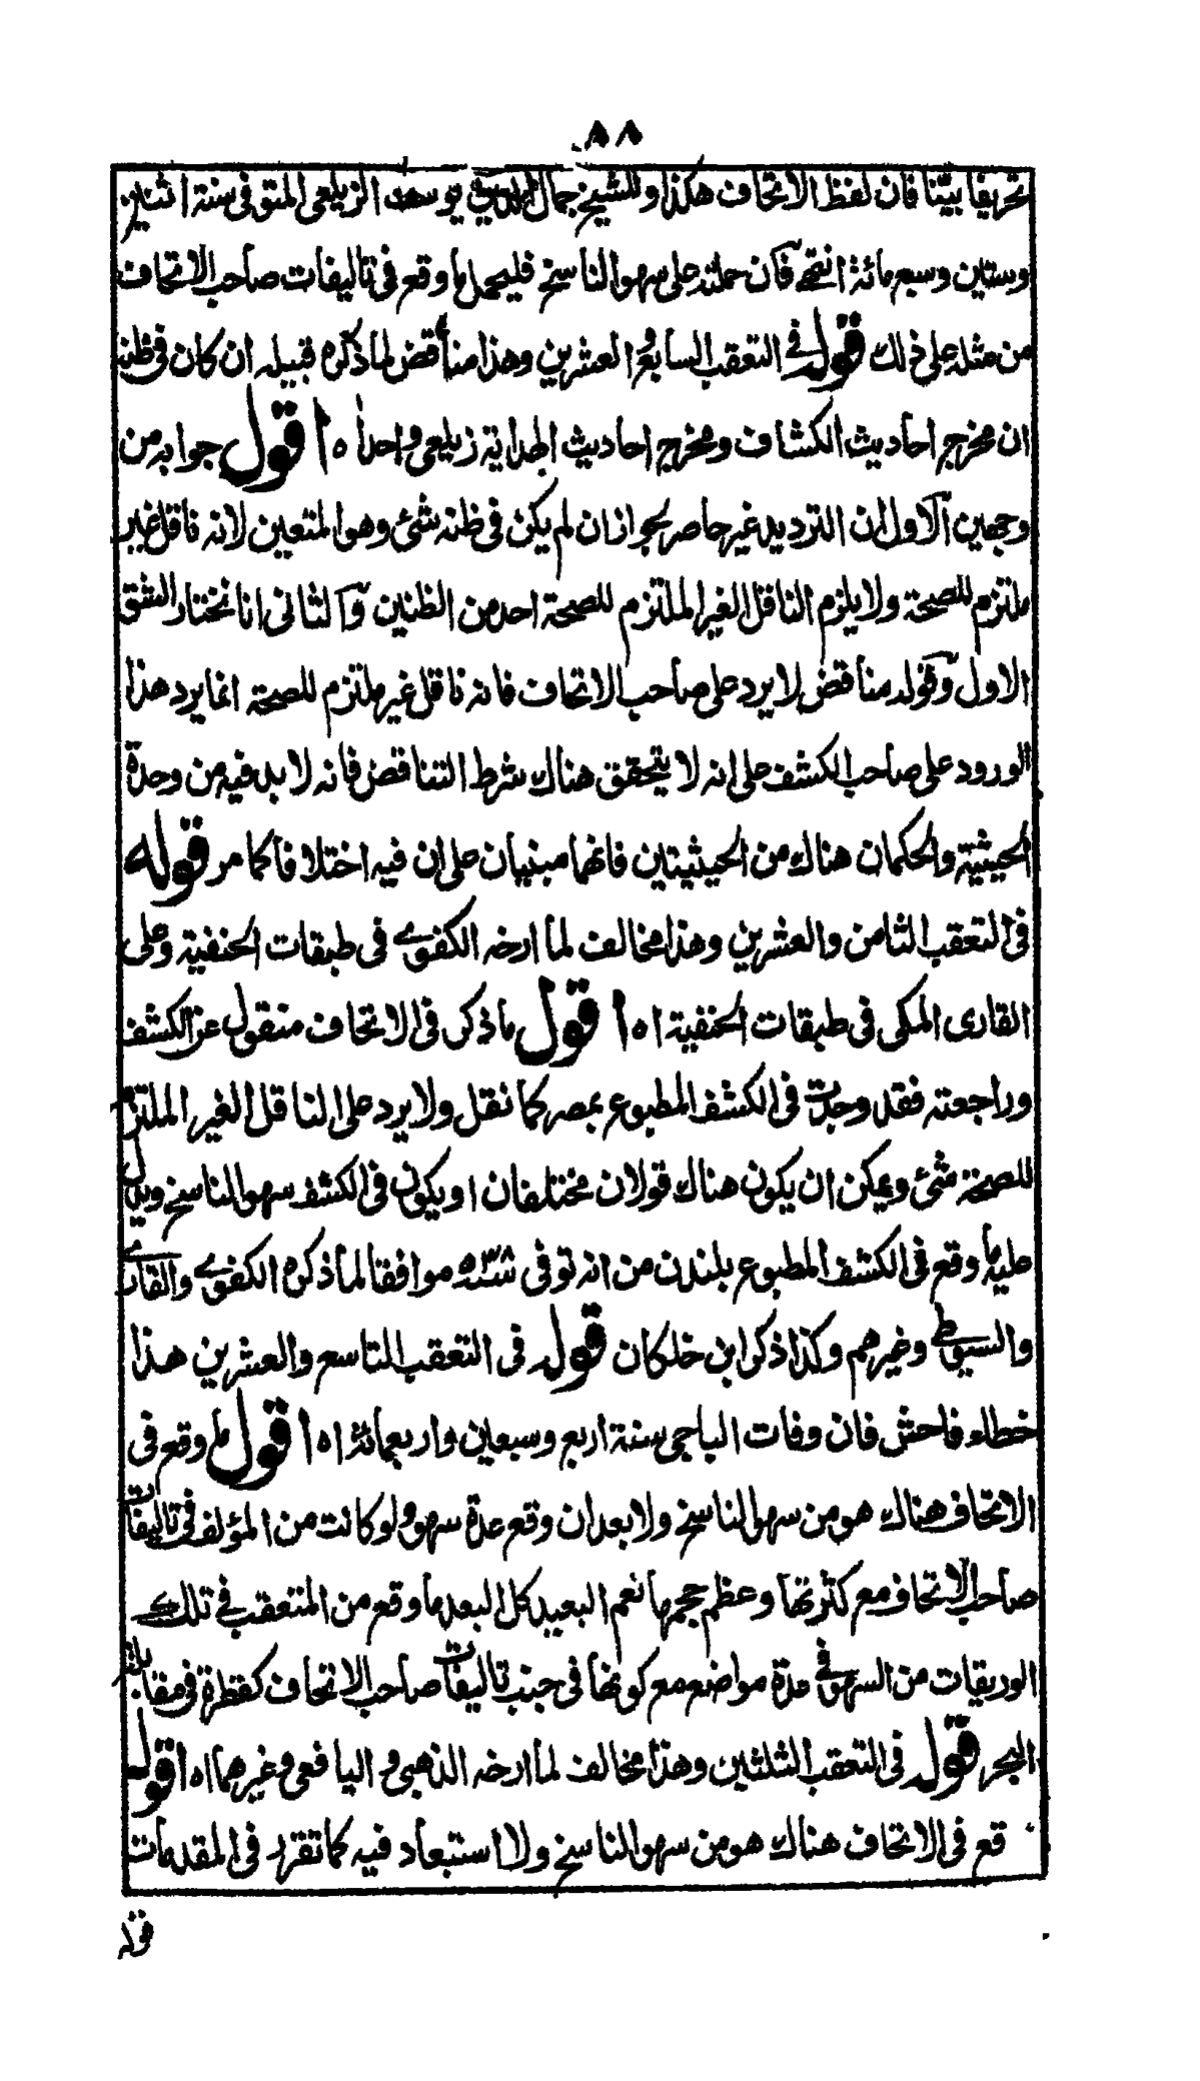 ٨٨
تحريفا بيّنا فان لفظ الاتحاف هكذا وللشيخ جمال الدين يوسف الزيلعى المتوفى سنة اثنين
وستين وسبع مائة انتهى فان حمله على سهو الناسخ فليحمل ما وقع فى تاليفات صاحب الاتحاف
من مثله على ذلك قوله فى التعقب السابع والعشرين وهذا مناقض لما ذكره قبيله ان كان فى ظنه
ان مخرج احاديث الكشاف ومخرج احاديث الهداية زيلعى واحدا اه اقول جوابه من
وجهين الاول ان الترديد غير حاصر لجواز ان لم يكن فى ظنه شئ وهو المتعين لانه ناقل غير
ملتزم للصحة ولا يلزم الناقل الغير الملتزم للصحة احد من الظنين والثانى انا نختار الشق
الاول وقوله مناقض لا يرد على صاحب الاتحاف فانه ناقل غير ملتزم للصحة انما يرد هذا
الورود على صاحب الكشف على انه لا يتحقق هناك شرط التناقض فانه لا بد فيه من وحدة
الحيثية والحكمان هناك من الحيثيتين فانهما مبنيان على ان فيه اختلافا كما مر قوله
فى التعقب الثامن والعشرين وهذا مخالف لما ارخه الكفوى فى طبقات الحنفية وعلى
القارى المكى فى طبقات الحنفية اه اقول ما ذكر فى الاتحاف منقول عن الكشف
وراجعته فقد وجدت فى الكشف المطبوع بمصر كما نقل ولا يرد على الناقل الغير الملتزم
للصحة شئ ويمكن ان يكون هناك قولان مختلفان او يكون فى الكشف سهو الناسخ ويدل
عليه ما وقع فى الكشف المطبوع بلندن من انه توفى سنة ٥٣٨ موافقا لما ذكره الكفوى والقارى
والسيوطى وغيرهم وكذا ذكر ابن خلكان قوله فى التعقب التاسع والعشرين هذا
خطاء فاحش فان وفات الباجى سنة اربع وسبعين واربعمائة اه اقول ما وقع فى
الاتحاف هناك هو من سهو الناسخ ولا بعد ان وقع عدة سهو ولو كانت من المؤلف فى تاليفات
صاحب الاتحاف مع كثرتها وعظم حجمها نعم البعيد كل البعد ما وقع من المتعقب فى تلك
الوريقات من السهو فى عدة مواضع مع كونها فى جنب تاليفات صاحب الاتحاف كقطرة فى مقابلة
البحر قوله فى التعقب الثلثين وهذا مخالف لما ارخه الذهبى واليافعى وغيرهما اه اقول
قع فى الاتحاف هناك هو من سهو الناسخ ولا استبعاد فيه كما تقرر فى المقدمات
قوله